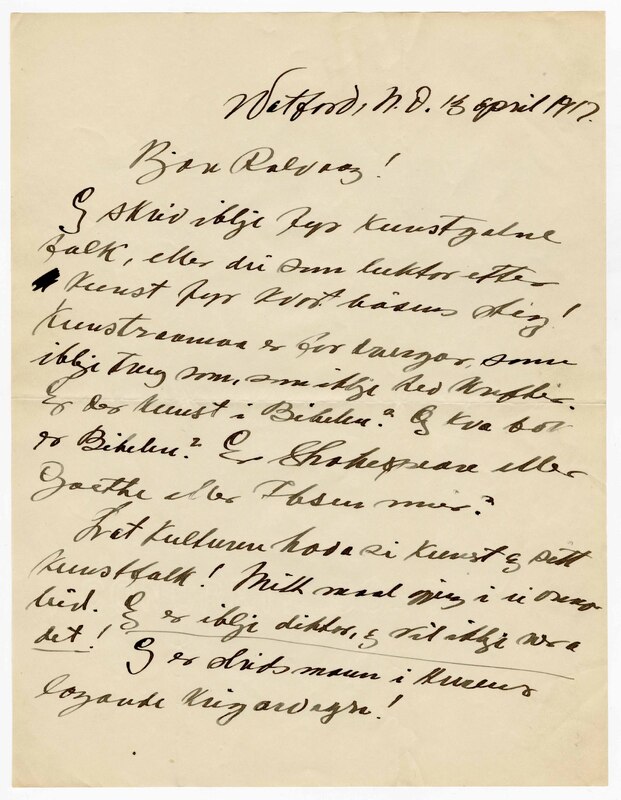 Watford, N.D. 13 april 1917.
Bjan Rolvaag!
Eg skriv ikkje fyr Kunstgalne
falk, eller dei som luktar etter
Kunst fyr kvart båsens steg!
Kunstraamaa er for dvergar, som
ikkje som, som ikkje hev Krafter.
Er der Kunst i Bibelen? Og Kva bok
er Bibelen? Er Shakespeare eller
Goethe eller Ibsen meir?
Lat Kulturen hava si Kunst og sitt
Kunstfalk! Mitt maal gjeng i ei onnor
leid. Eg er ikkje diktar, og vil ikkje vera
det! Eg er stridsmann i
logande Krigar